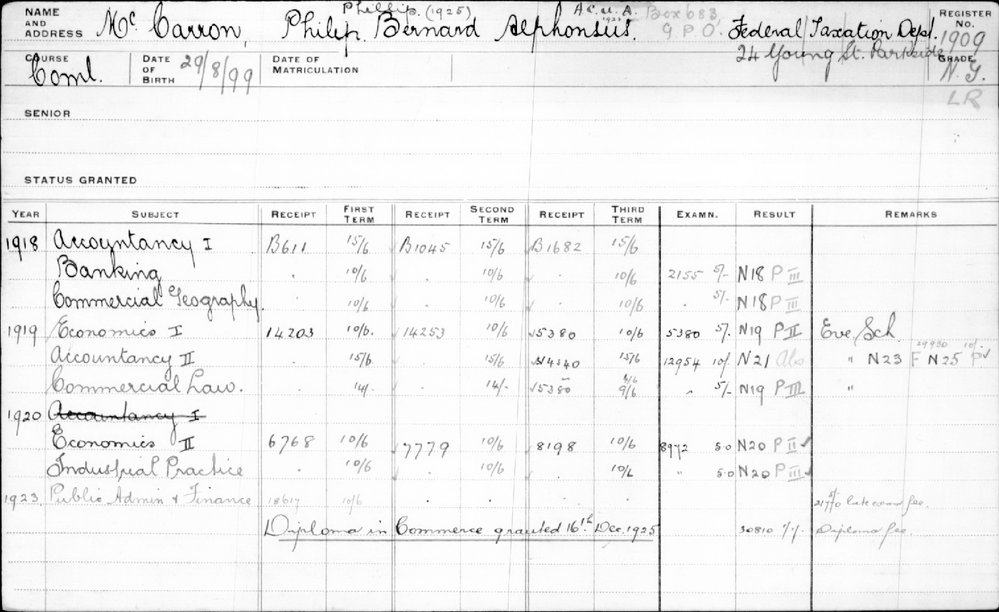 Phillip. (1925) A.C.U.A. Box 683,
NAME AND ADDRESS Mc Carron, Philip Bernard Alphonsus. G.P.O. Federal Taxation Dept. REGISTER No. 1909
24 Young St. Parkside
COURSE Coml. DATE OF BIRTH 29/8/99 DATE OF MATRICULATION GRADE N.G.
LR
SENIOR
STATUS GRANTED
YEAR SUBJECT RECEIPT FIRST TERM RECEIPT SECOND TERM RECEIPT THIRD TERM EXAMN. RESULT REMARKS
1918 Accountancy I B611 15/6 B1045 15/6 B1682 15/6
Banking . 10/6 . 10/6 . 10/6 2155 5/- N18 P III
Commercial Geography. . 10/6 . 10/6 . 10/6 . 5/- N18 P III
1919 Economics I 14203 10/6. 14253 10/6 15380 10/6 5380 5/. N19 P II Eve. Sch.
Accountancy II . 15/6 . 15/6 14540 15/6 12954 10/ N21 Abs " N23 F 29930 10/- N25 P
Commercial Law. . 14/. . 14/- 15380 9/6 " 5/- N19 P III "
1920 Accountancy I
Economics II 6768 10/6 7779 10/6 8198 10/6 8972 5.0 N20 P II
Industrial Practice . 10/6 . 10/6 . 10/6 " 5.0 N20 P III
1923 Public Admin & Finance 18617 10/6 . . . . late exam fee.
Diploma in Commerce granted 16th Dec. 1925 30810 Diploma fee.